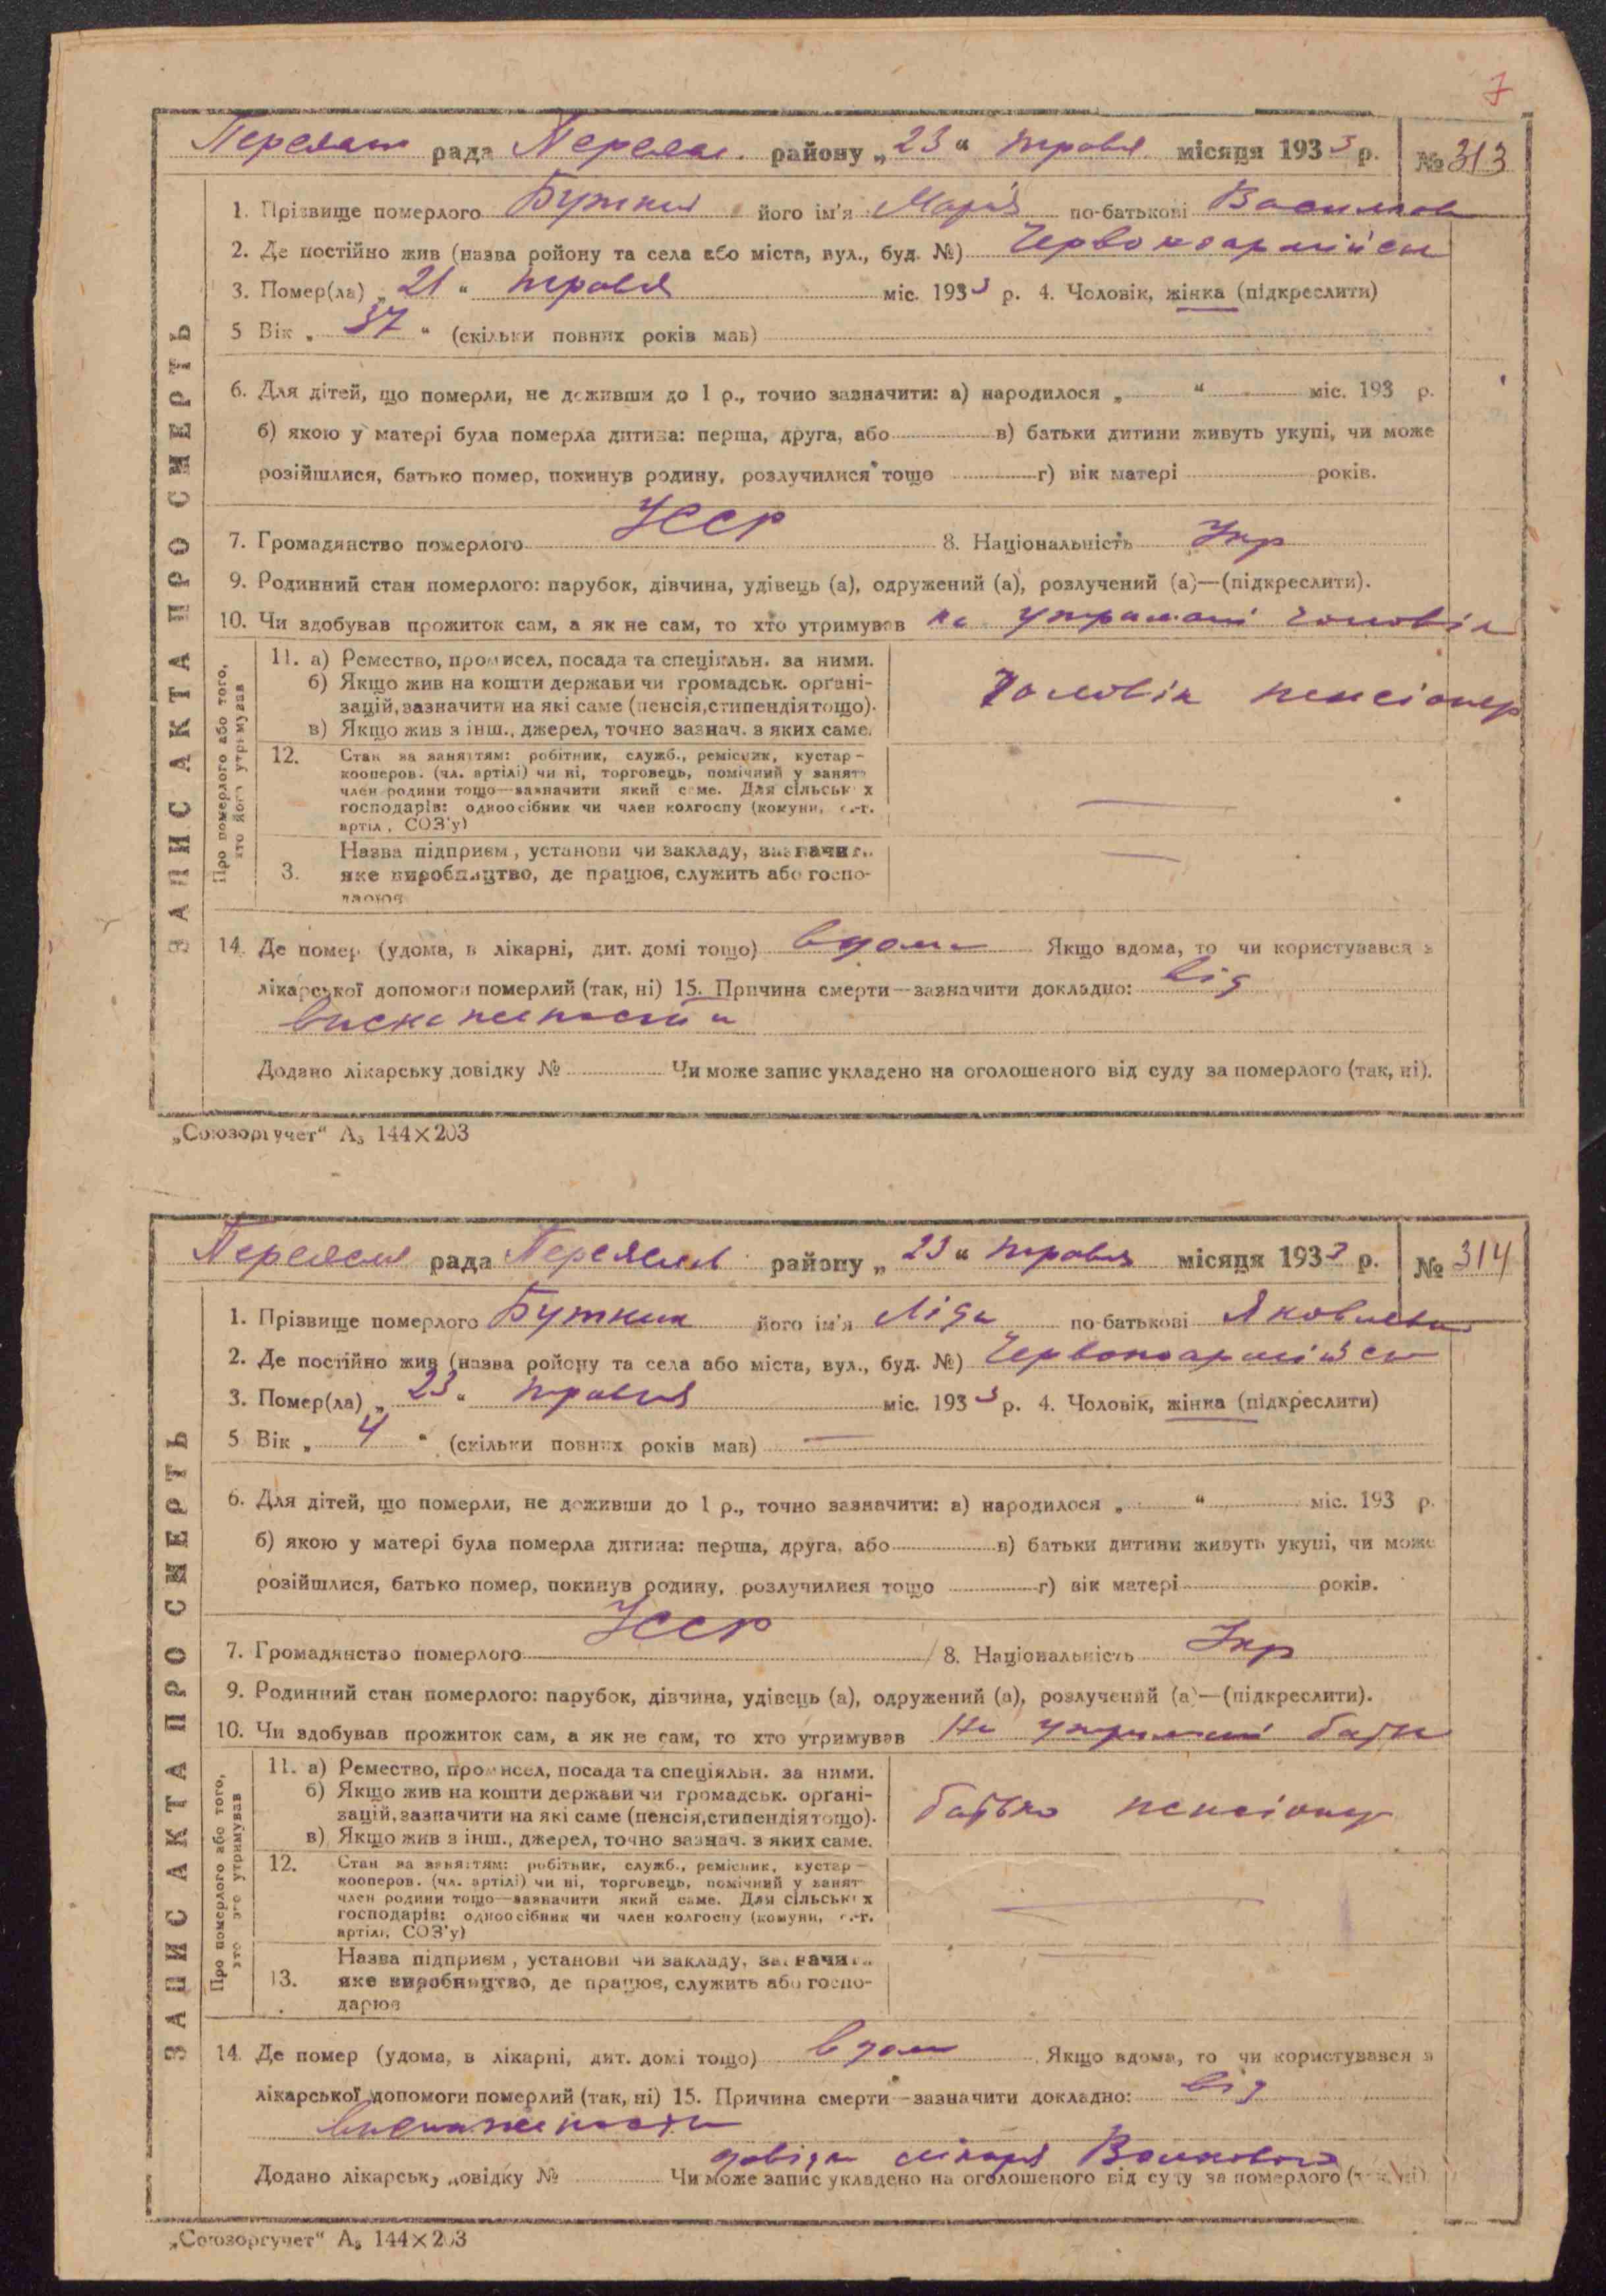 7
Переяслав рада Переясл. району „23“ травня місяця 1933 р. № 313
ЗАПИС АКТА ПРО СМЕРТЬ
1. Прізвище померлого Бутник його ім'я Марія по-батькові Василівна
2. Де постійно жив (назва ройону та села або міста, вул., буд. №) Червоноармійськ
3. Помер(ла) „21“ травня міс. 1933 р. 4. Чоловік, жінка (підкреслити)
5 Вік „37“ (скільки повних років мав)
6. Для дітей, що померли, не доживши до 1 р., точно зазначити: а) народилося „ “ міс. 193 р.
б) якою у матері була померла дитина: перша, друга, або в) батьки дитини живуть укупі, чи може
розійшлися, батько помер, покинув родину, розлучилися тощо г) вік матері років.
7. Громадянство померлого УССР 8. Національність Укр
9. Родинний стан померлого: парубок, дівчина, удівець (а), одружений (а), розлучений (а)—(підкреслити).
10. Чи здобував прожиток сам, а як не сам, то хто утримував на утриманні чоловіка
Про померлого або того, хто його утримував
11. а) Ремество, промисел, посада та спеціяльн. за ними.
б) Якщо жив на кошти держави чи громадськ. орґані-
зацій, зазначити на які саме (пенсія, стипендія тощо).
в) Якщо жив з інш., джерел, точно зазнач. з яких саме.
Чоловік пенсіонер
12. Стан за заняттям: робітник, служб., ремісник, кустар-
кооперов. (чл. артілі) чи ні, торговець, помічний у занят
член родини тощо—зазначити який саме. Для сільськ х
господарів: одноосібник чи член колгоспу (комуни, с.-г.
артіл, СОЗ'у)
Назва підприєм, установи чи закладу, зазначит
3. яке виробництво, де працює, служить або госпо-
дарює
14. Де помер (удома, в лікарні, дит. домі тощо) вдома Якщо вдома, то чи користувався з
лікарської допомоги померлий (так, ні) 15. Причина смерти—зазначити докладно: від
виснаженности
Додано лікарську довідку № Чи може запис укладено на оголошеного від суду за померлого (так, ні).
„Союзоргучет“ А₅ 144×203
Переяслав рада Переяслав району „23“ травня місяця 1933 р. № 314
ЗАПИС АКТА ПРО СМЕРТЬ
1. Прізвище померлого Бутник його ім'я Ліда по-батькові Яковлевна
2. Де постійно жив (назва ройону та села або міста, вул., буд. №) Червоноармійськ
3. Помер(ла) „23“ травня міс. 1933 р. 4. Чоловік, жінка (підкреслити)
5 Вік „4“ (скільки повних років мав) —
6. Для дітей, що померли, не доживши до 1 р., точно зазначити: а) народилося „ “ міс. 193 р.
б) якою у матері була померла дитина: перша, друга, або в) батьки дитини живуть укупі, чи може
розійшлися, батько помер, покинув родину, розлучилися тощо г) вік матері років.
7. Громадянство померлого УССР 8. Національність Укр
9. Родинний стан померлого: парубок, дівчина, удівець (а), одружений (а), розлучений (а)—(підкреслити).
10. Чи здобував прожиток сам, а як не сам, то хто утримував На утриманні батька
Про померлого або того, хто його утримував
11. а) Ремество, промисел, посада та спеціяльн. за ними.
б) Якщо жив на кошти держави чи громадськ. орґані-
зацій, зазначити на які саме (пенсія, стипендія тощо).
в) Якщо жив з інш., джерел, точно зазнач. з яких саме.
батько пенсіонер
12. Стан за заняттям: робітник, служб., ремісник, кустар-
кооперов. (чл. артілі) чи ні, торговець, помічний у занят
член родини тощо—зазначити який саме. Для сільських
господарів: одноосібник чи член колгоспу (комуни, с.-г.
артілі, СОЗ'у)
Назва підприєм, установи чи закладу, зазначити
13. яке виробництво, де працює, служить або госпо-
дарює
14. Де помер (удома, в лікарні, дит. домі тощо) вдома Якщо вдома, то чи користувався з
лікарської допомоги померлий (так, ні) 15. Причина смерти—зазначити докладно: від
виснаженности
довідка лікаря
Додано лікарську довідку № Чи може запис укладено на оголошеного від суду за померлого (так, ні)
„Союзоргучет“ А₅ 144×203